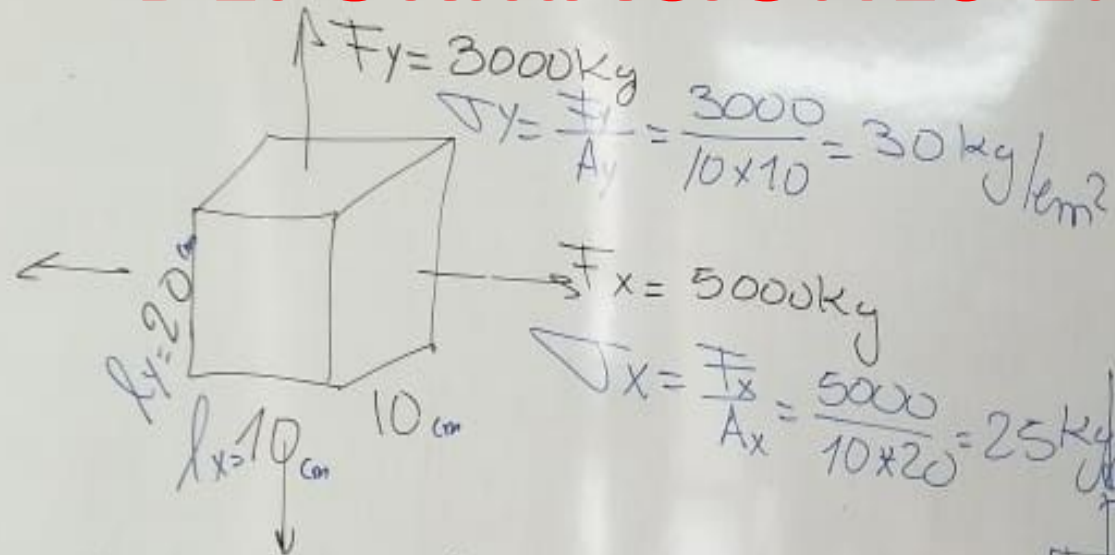 Fy = 3000kg
σy = Fy/Ay = 3000/10×10 = 30 kg/cm²
Fx = 5000kg
σx = Fx/Ax = 5000/10×20 = 25 kg
ly=20 cm
10 cm
lx=10 cm